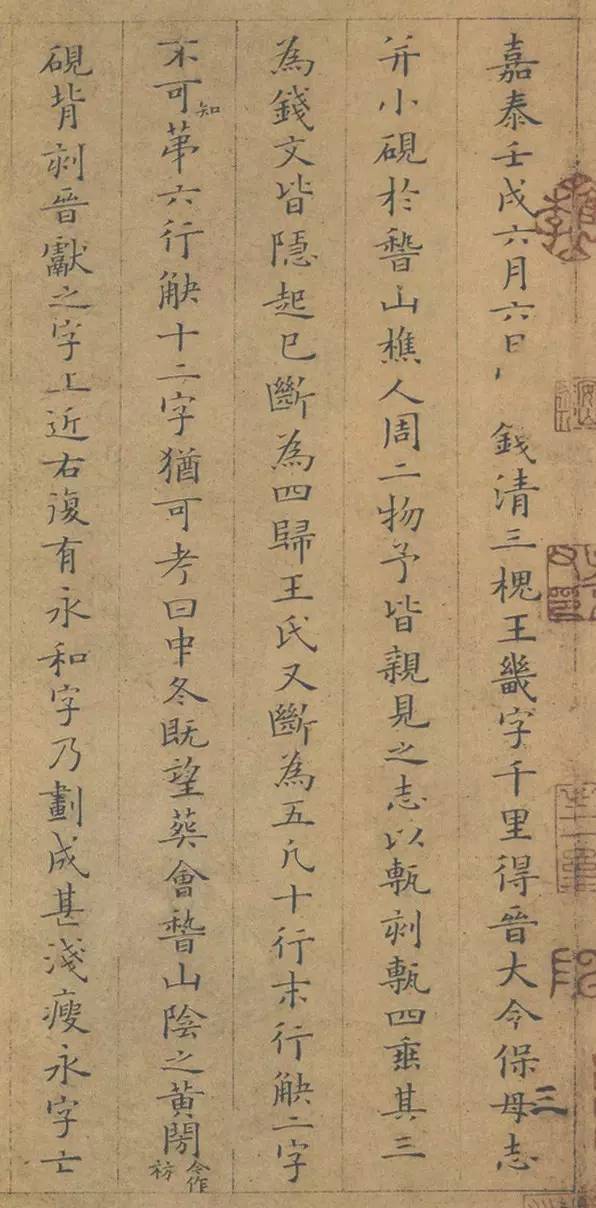 嘉泰壬戌六月六日錢清三槐王畿字千里得晉大令保母志
并小硯於稽山樵人周二物予皆親見之志以甎刻甎四垂其三
為錢文皆隱起已斷為四歸王氏又斷為五凡十行末行缺二字
不可知第六行缺十二字猶可考曰中冬既望葬會稽山陰之黃閍令作祊
硯背刻晉獻之字上近右復有永和字乃劃成甚淺瘦永字亡
三